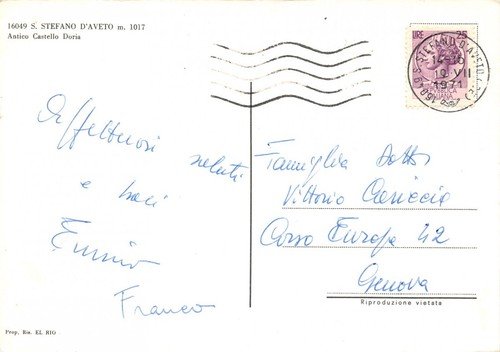 16049 S. STEFANO D'AVETO m. 1017
Antico Castello Doria
LIRE 25
16049 S. STEFANO D'AVETO (GE)
14-30
10 VII
1971
Affettuosi saluti
e baci
Franco
Famiglia Dott.
Vittorio
Corso Europa 42
Genova
Riproduzione vietata
Prop. Ris. Ed. RIO